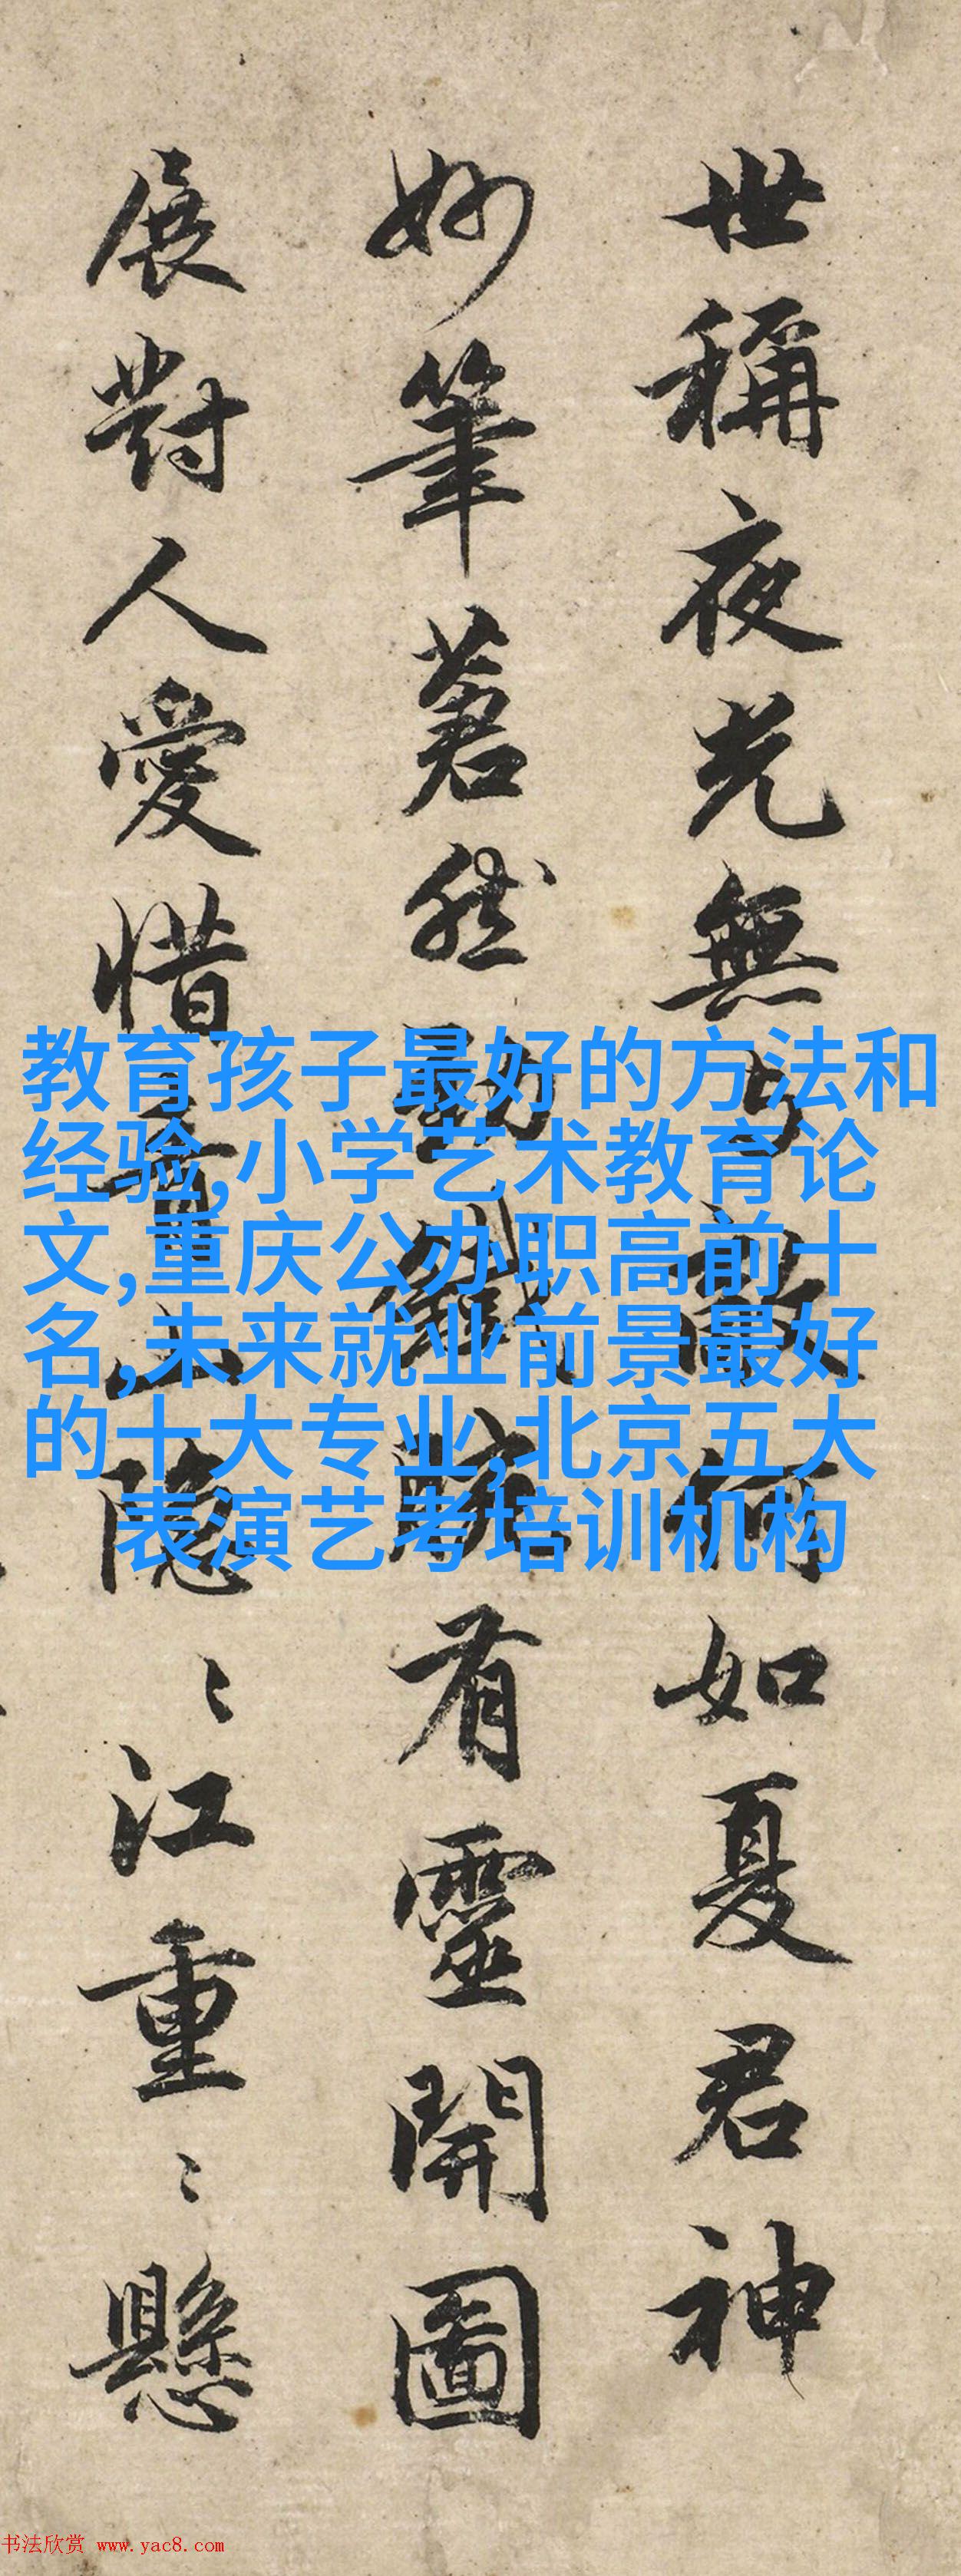 世稱夜光無與敵何如夏君神
妙筆蒼然勁鐵腕有靈開圖
展對人愛惜青山隱〻江重〻懸
教育孩子最好的方法和
经验,小学艺术教育论
文,重庆公办职高前十
名,未来就业前景最好
的十大专业,北京五大
表演艺考培训机构
书法欣赏 www.yac8.com